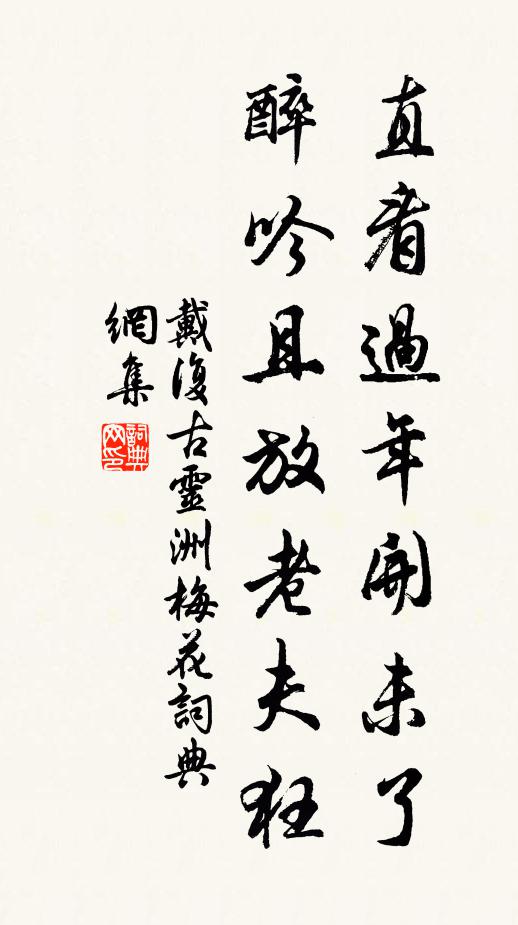 直看過年開未了
醉吟且放老夫狂
戴復古靈洲梅花詞典
網集
詞典
網印